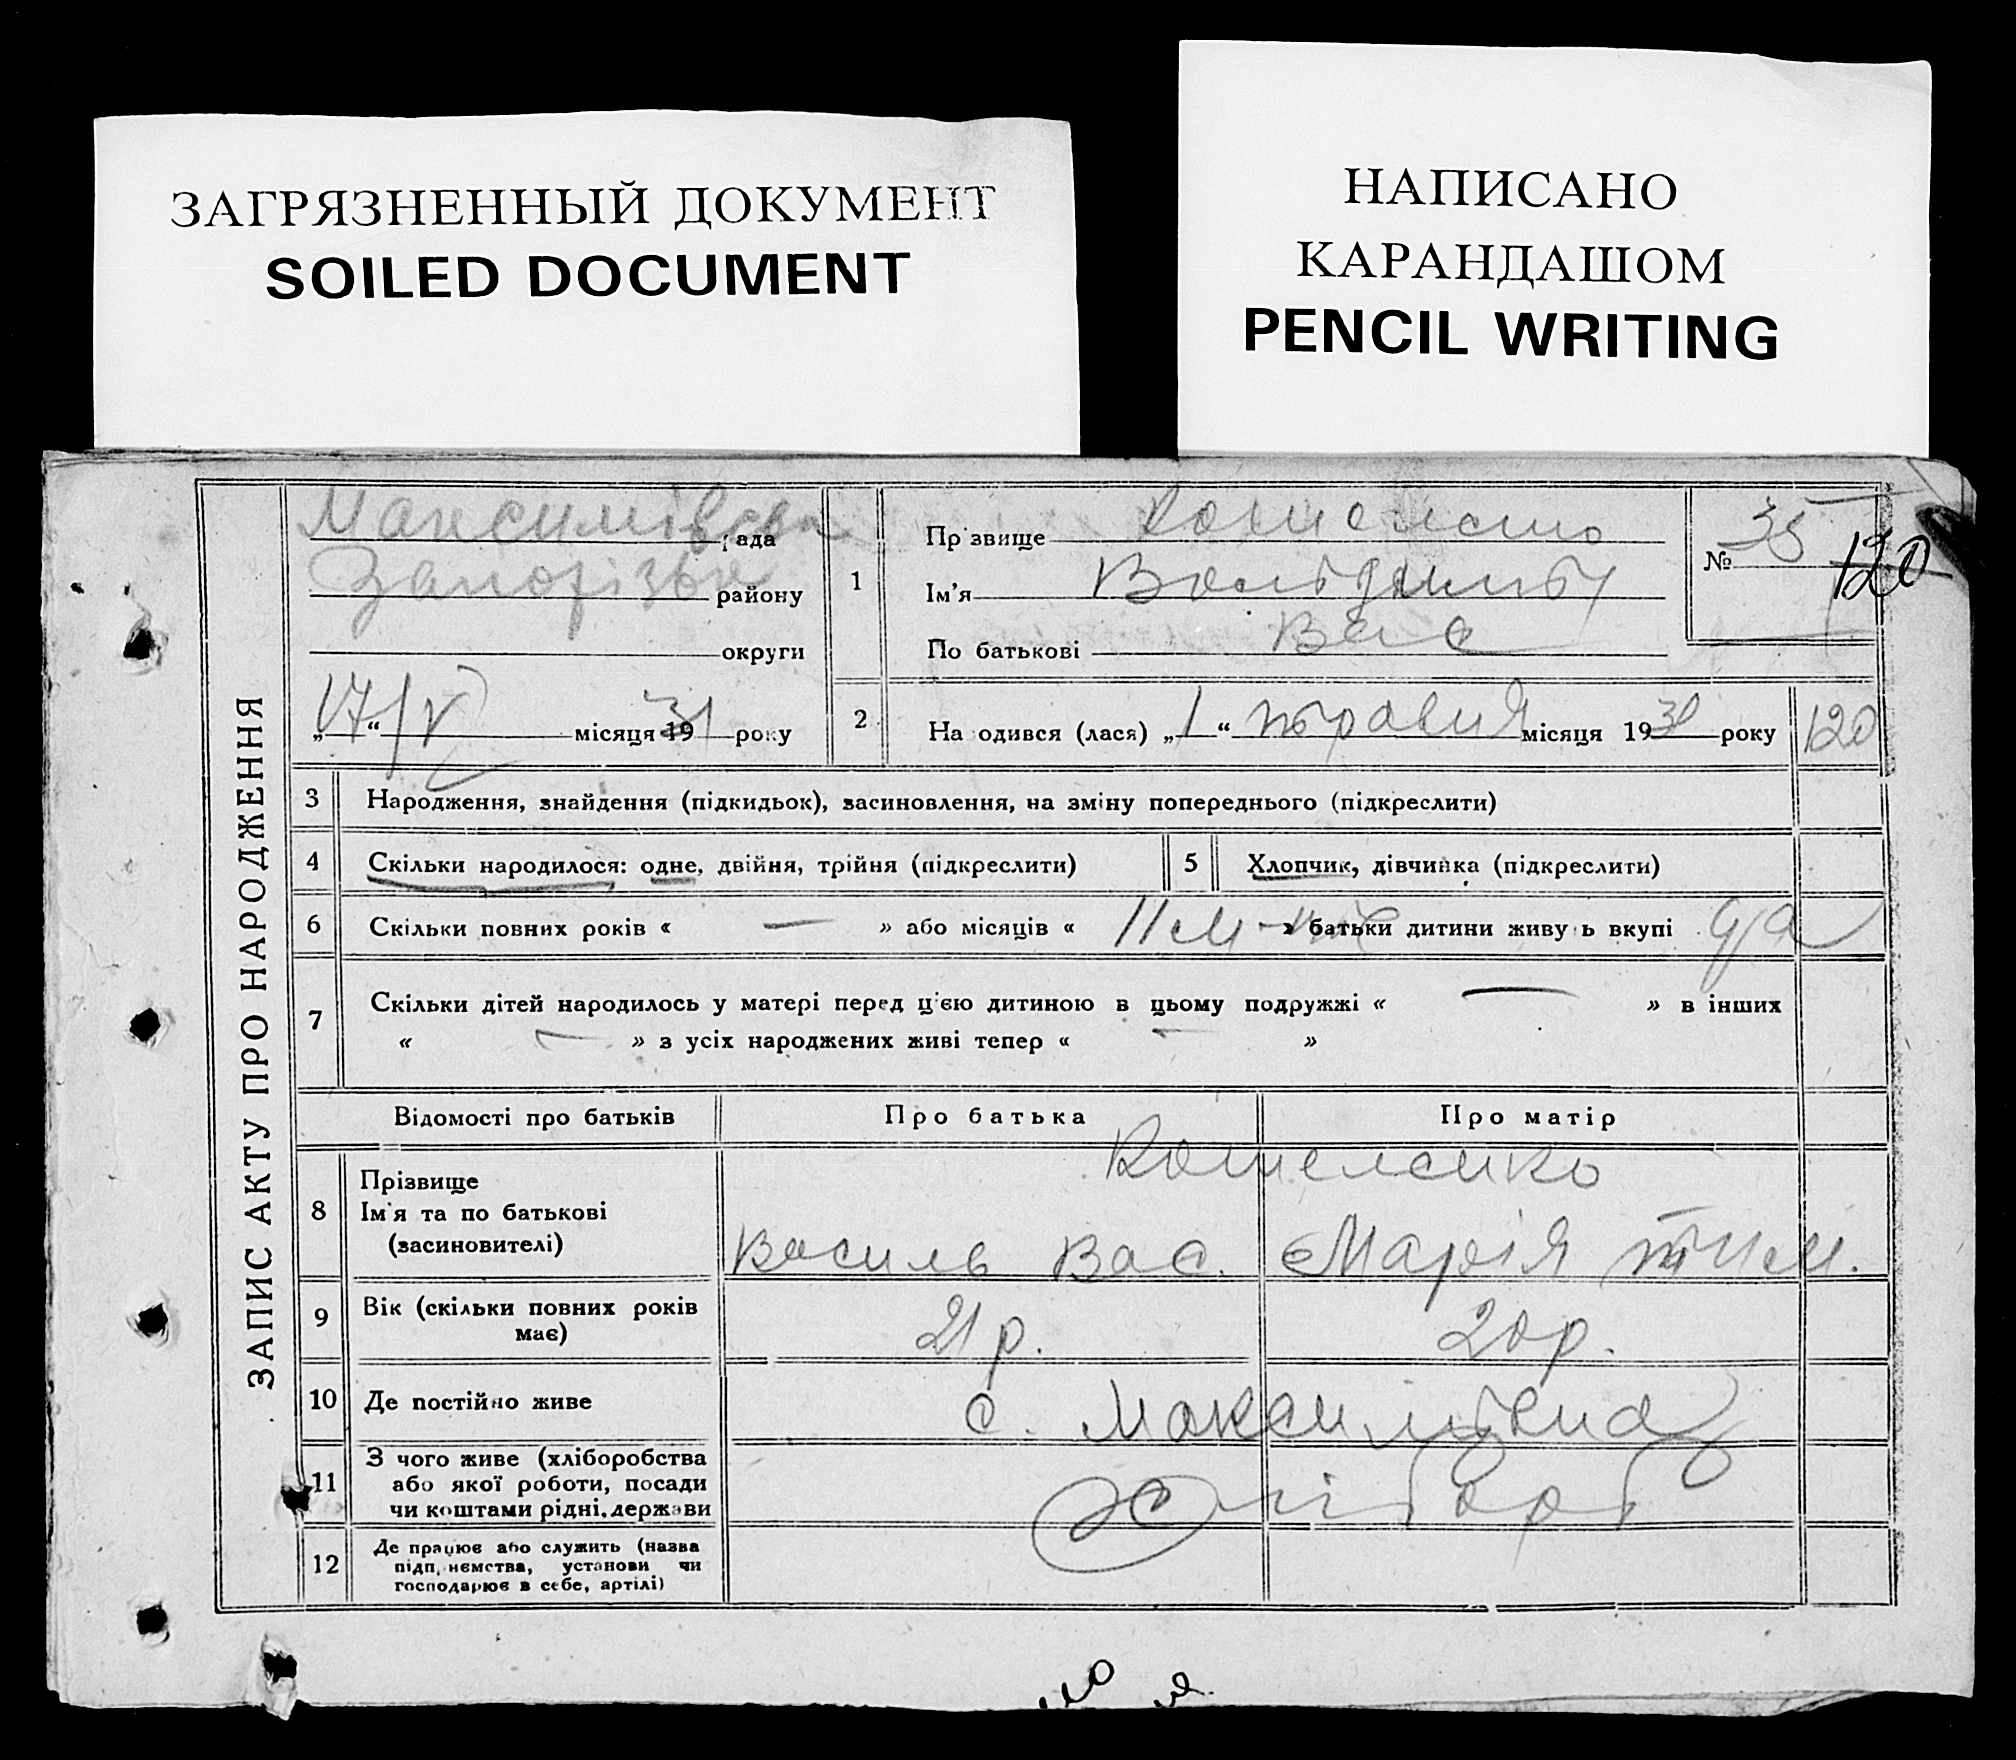 ЗАГРЯЗНЕННЫЙ ДОКУМЕНТ
SOILED DOCUMENT
НАПИСАНО
КАРАНДАШОМ
PENCIL WRITING
ЗАПИС АКТУ ПРО НАРОДЖЕННЯ
Максимівська рада
Запорізьк району
округи
„17“ / V місяця 1931 року
1 Прізвище
Ім'я
По батькові Вас
№ 35 120
2 Народився (лася) „1“ травня місяця 1931 року 120
3 Народження, знайдення (підкидьок), засиновлення, на зміну попереднього (підкреслити)
4 Скільки народилося: одне, двійня, трійня (підкреслити) 5 Хлопчик, дівчинка (підкреслити)
6 Скільки повних років « — » або місяців « 11 » батьки дитини живуть вкупі
7 Скільки дітей народилось у матері перед ц'єю дитиною в цьому подружжі « — » в інших
« — » з усіх народжених живі тепер « — »
Відомості про батьків Про батька Про матір
8 Прізвище Кошеленко
Ім'я та по батькові
(засиновителі) Василь Вас. Марія Тим.
9 Вік (скільки повних років
має) 21 р. 20 р.
10 Де постійно живе с. Максимівка
11 З чого живе (хліборобства
або якої роботи, посади
чи коштами рідні, держави Хлібороб
12 Де працює або служить (назва
підприємства, установи чи
господарює в себе, артілі)